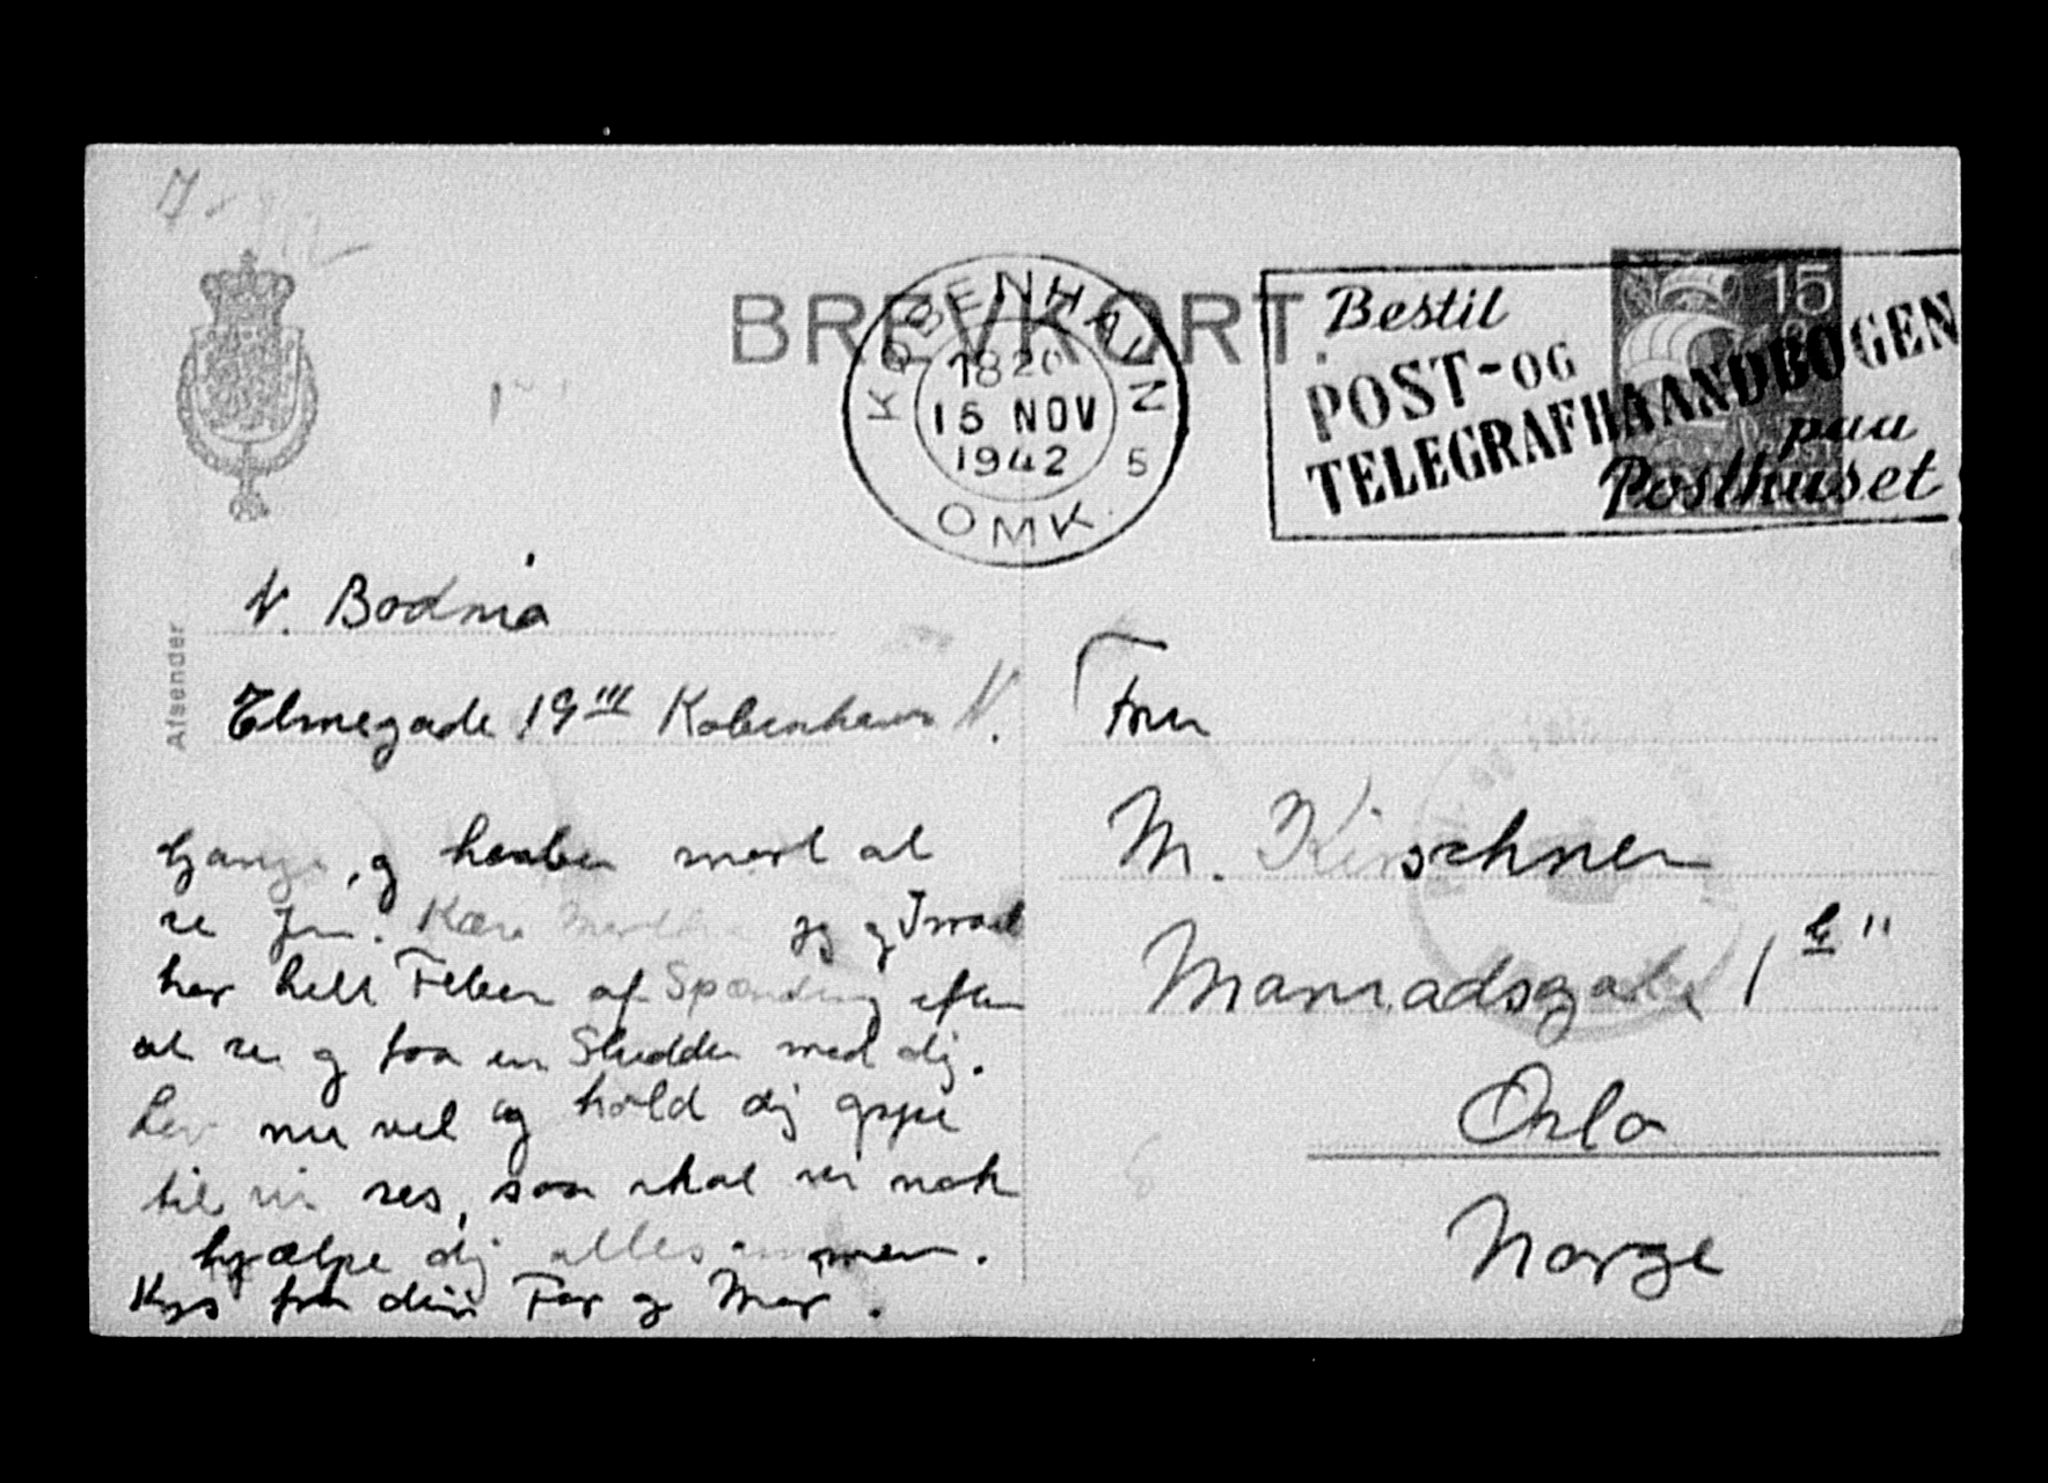 BREVKORT.
KØBENHAVN
1820
15 NOV
1942
5
OMK.
Bestil
POST- OG
TELEGRAFHAANDBOGEN
paa
Posthuset
15
Afsender
N. Bodnia
Elmegade 19 III København N.
Gange, og haaber snart at
se Jer. Kære jeg og Israel
har helt Feber af Spænding efter
at se og faa en Sludder med dig.
Lev nu vel og hold dig oppe
til vi ses, saa skal vi nok
hjælpe dig allesammen.
Kys fra din Far og Mor.
Fru
M. Kirschner
Marradsgate 1
Oslo
Norge